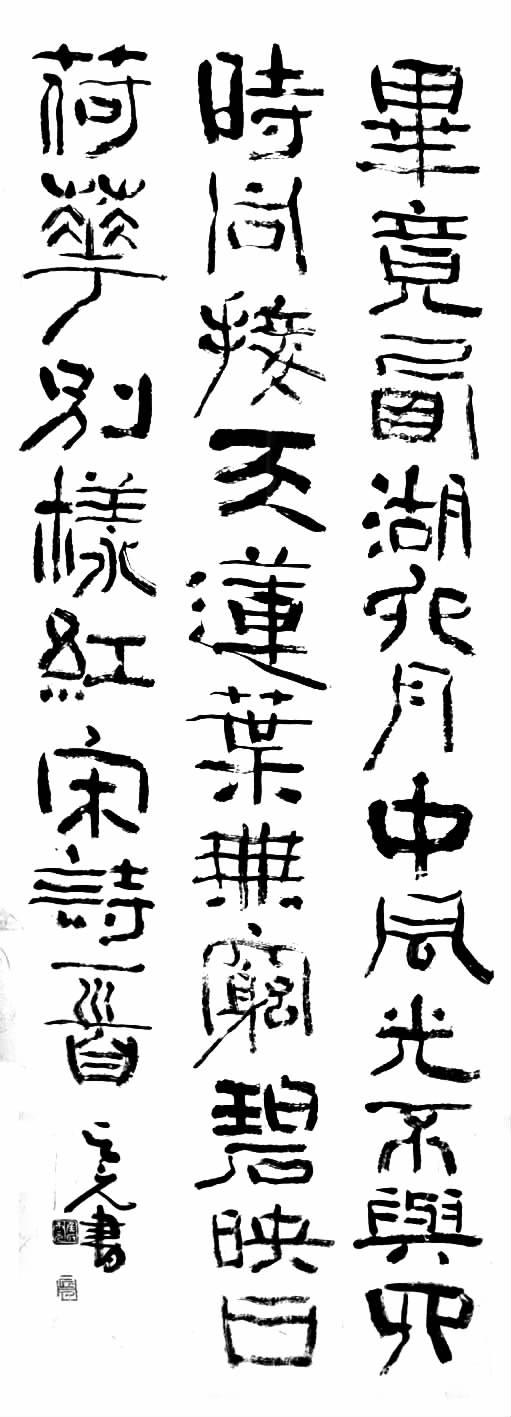 畢竟西湖六月中風光不與四
時同接天蓮葉無窮碧映日
荷華別樣紅宋詩一首
書